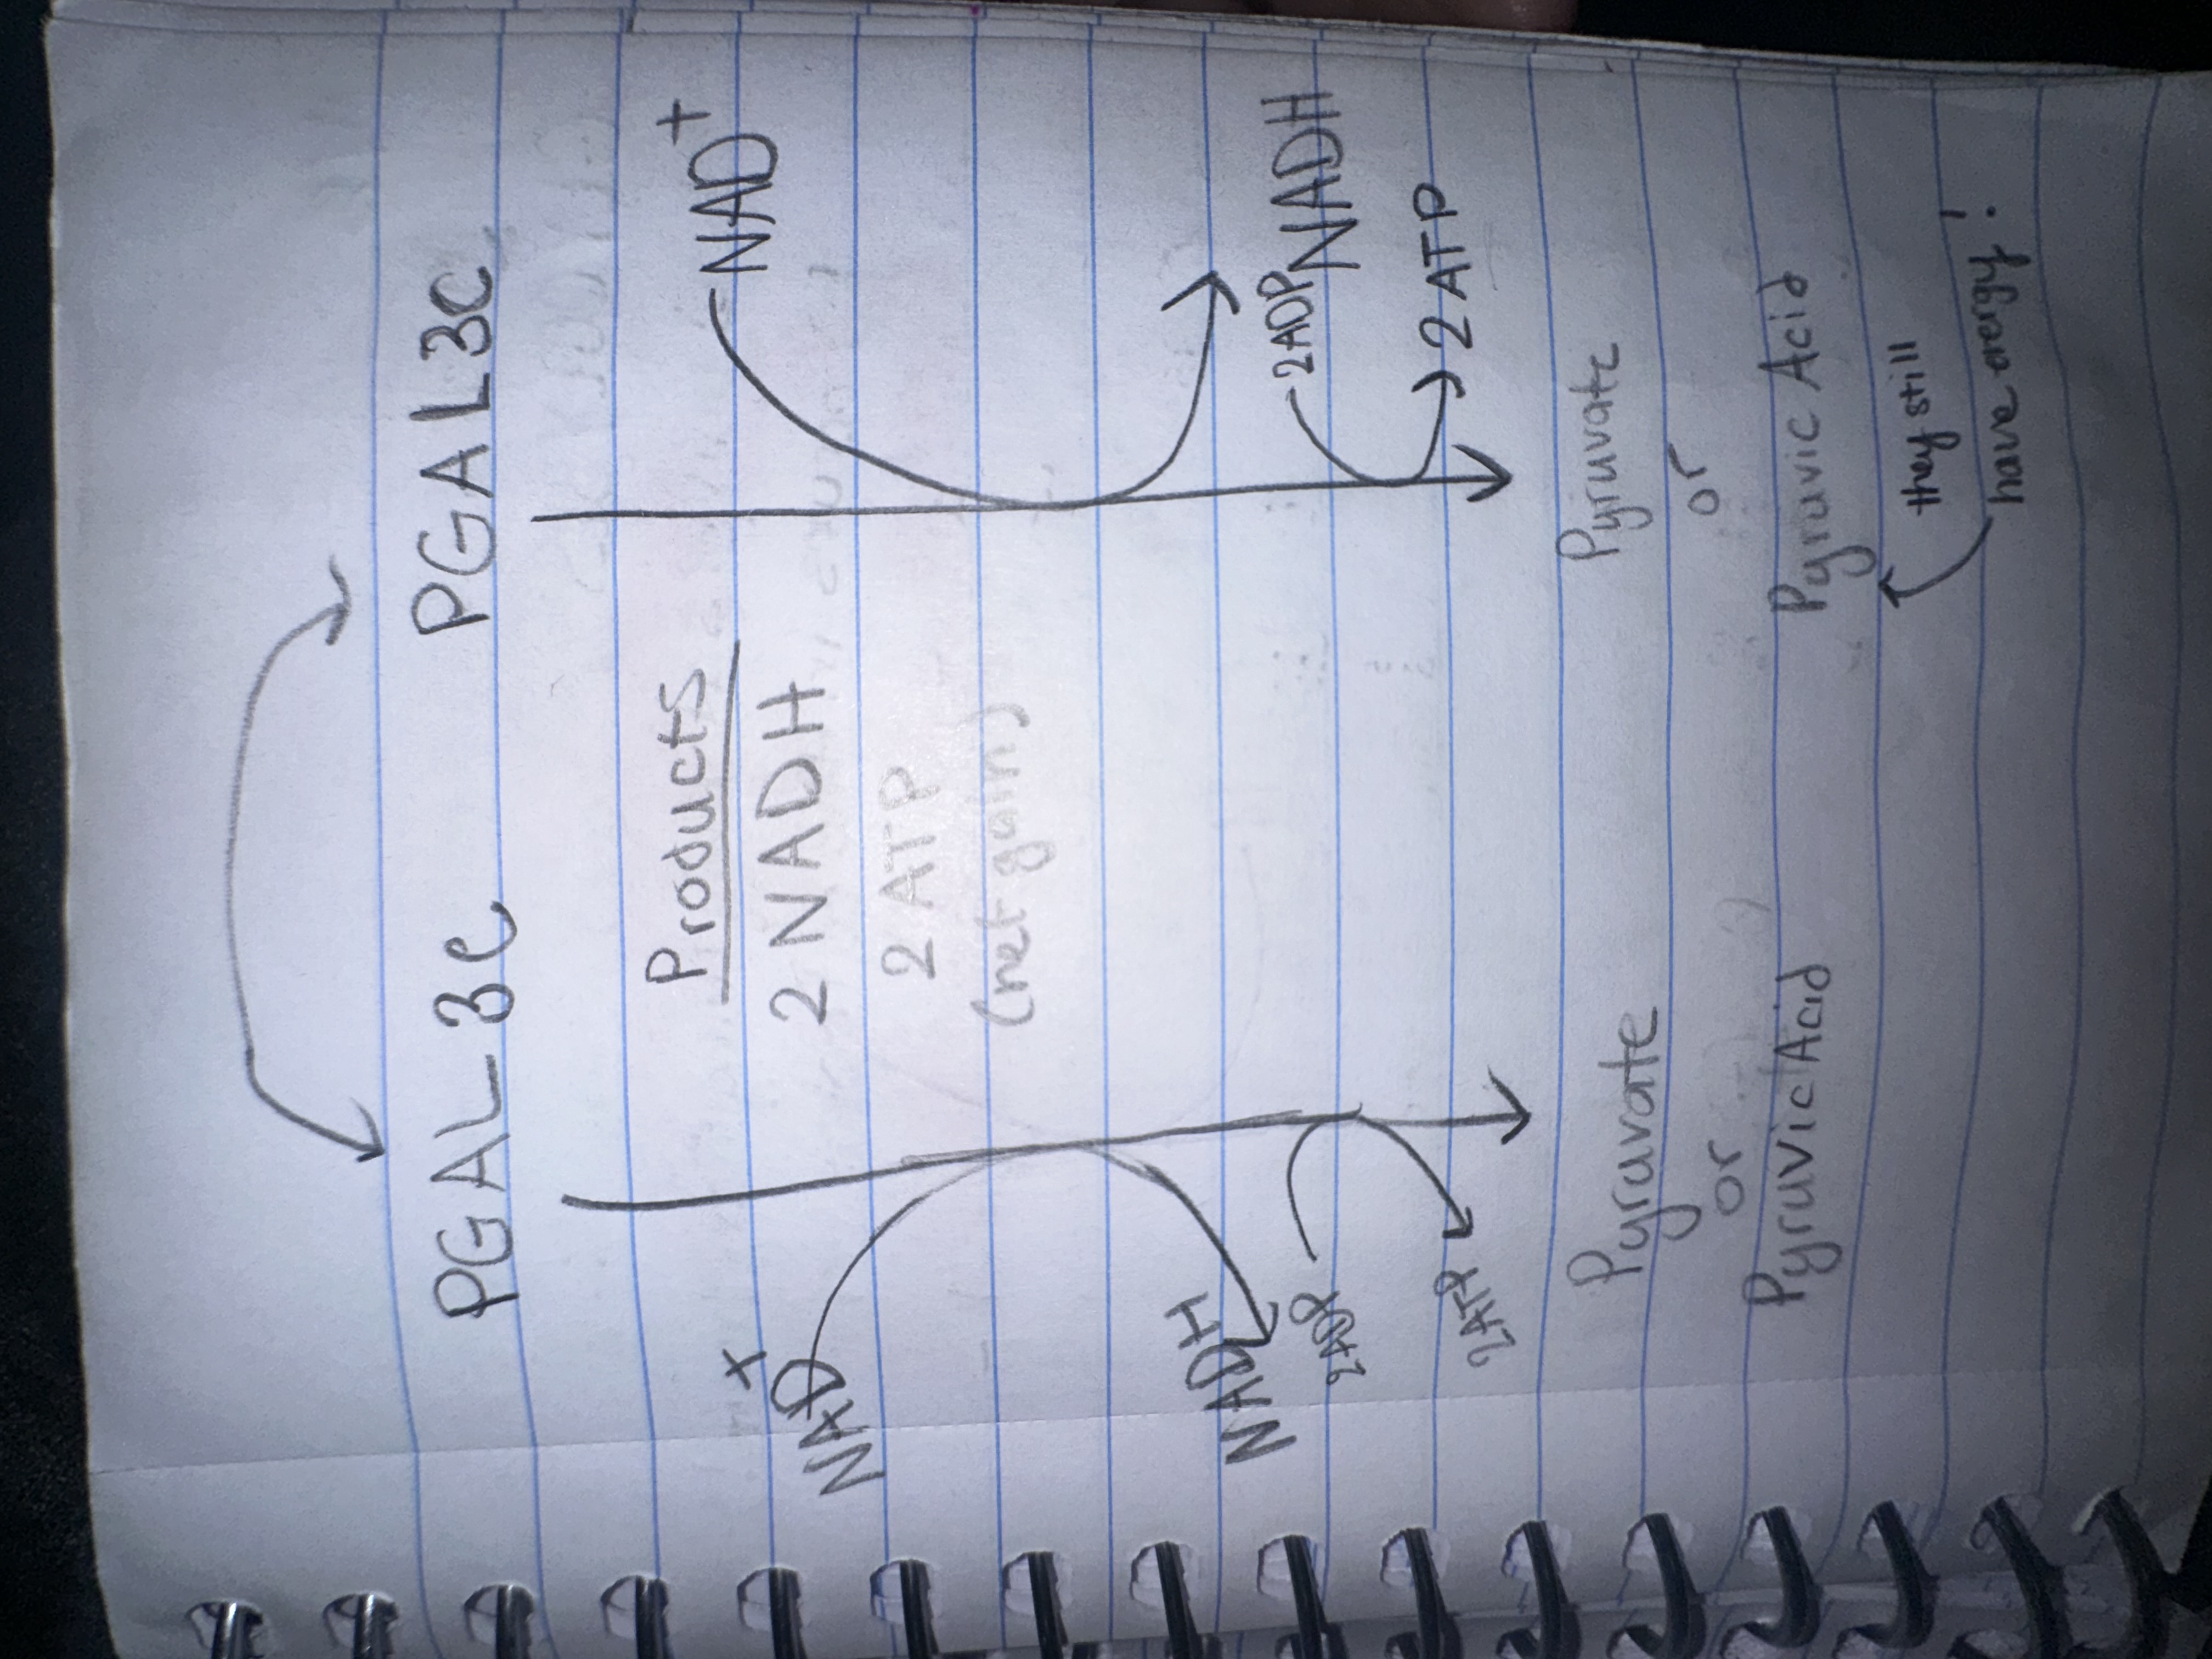 PGAL 3C PGAL 3C
NAD+ Products NAD+
2 NADH
2 ATP
(net gain)
NADH NADH
2ADP 2ADP
2ATP 2 ATP
Pyruvate Pyruvate
or or
Pyruvic Acid Pyruvic Acid
they still
have energy!